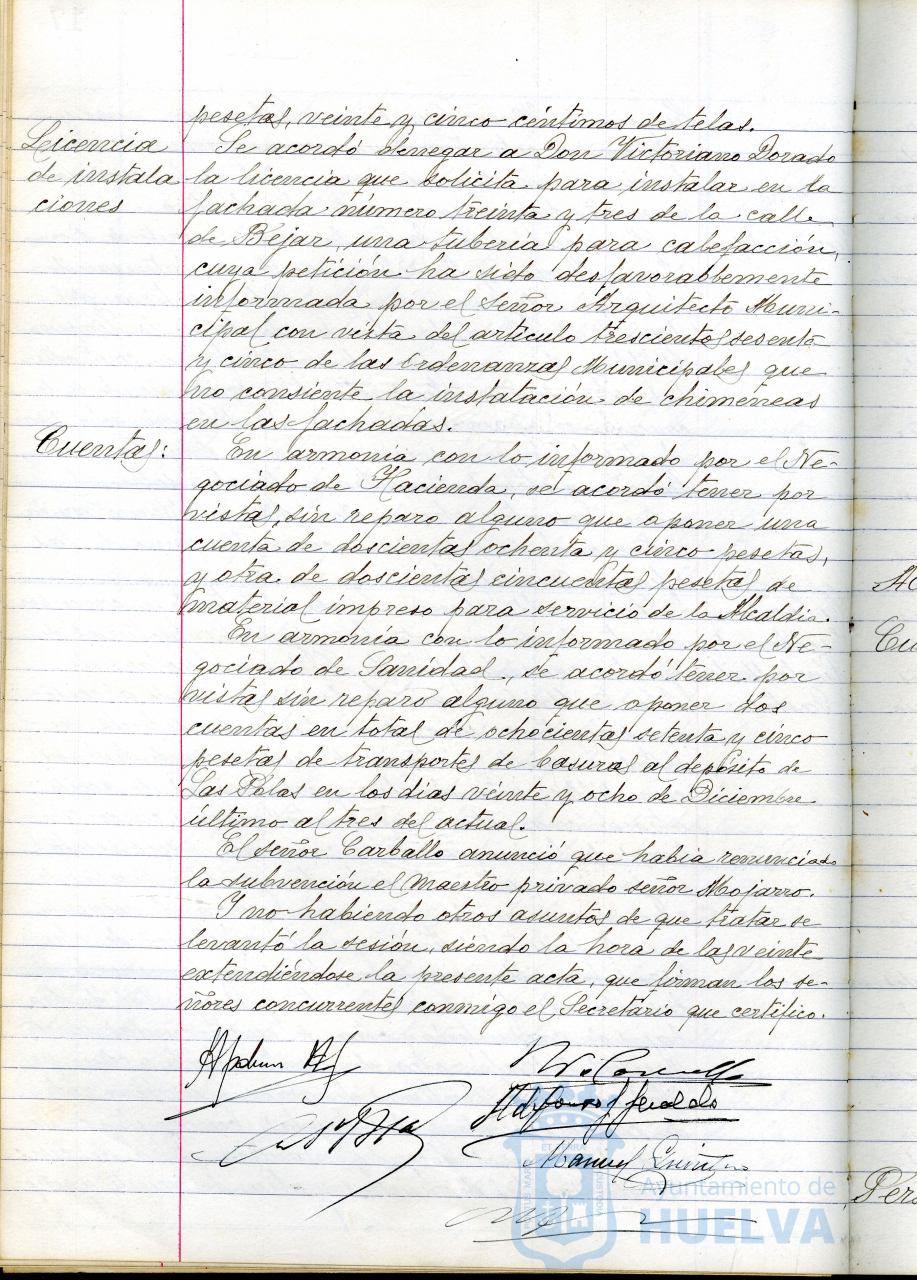 pesetas, veinte y cinco céntimos de telas.
Licencia
de instala
ciones
Se acordó denegar a Don Victoriano Dorado
la licencia que solicita para instalar en la
fachada número treinta y tres de la calle
de Béjar, una tubería para calefacción,
cuya petición ha sido desfavorablemente
informada por el señor Arquitecto Muni-
cipal con vista del artículo trescientos sesenta
y cinco de las Ordenanzas Municipales que
no consiente la instalación de chimeneas
en las fachadas.
Cuentas:
En armonía con lo informado por el Ne-
gociado de Hacienda, se acordó tener por
vistas, sin reparo alguno que oponer una
cuenta de doscientas ochenta y cinco pesetas,
y otra de doscientas cincuentas pesetas de
material impreso para servicio de la Alcaldia.
En armonía con lo informado por el Ne-
gociado de Sanidad, se acordó tener por
vistas sin reparo alguno que oponer dos
cuentas en total de ochocientas setenta y cinco
pesetas de transportes de basuras al depósito de
Las Polas en los dias veinte y ocho de Diciembre
último al tres del actual.
El señor Carballo anunció que habia renunciado
la subvención el maestro privado señor Mojarro.
Y no habiendo otros asuntos de que tratar se
levantó la sesión, siendo la hora de las veinte
extendiéndose la presente acta, que firman los se-
ñores concurrentes conmigo el Secretario que certifico.
Manuel
Ayuntamiento de
HUELVA
Cu
Per